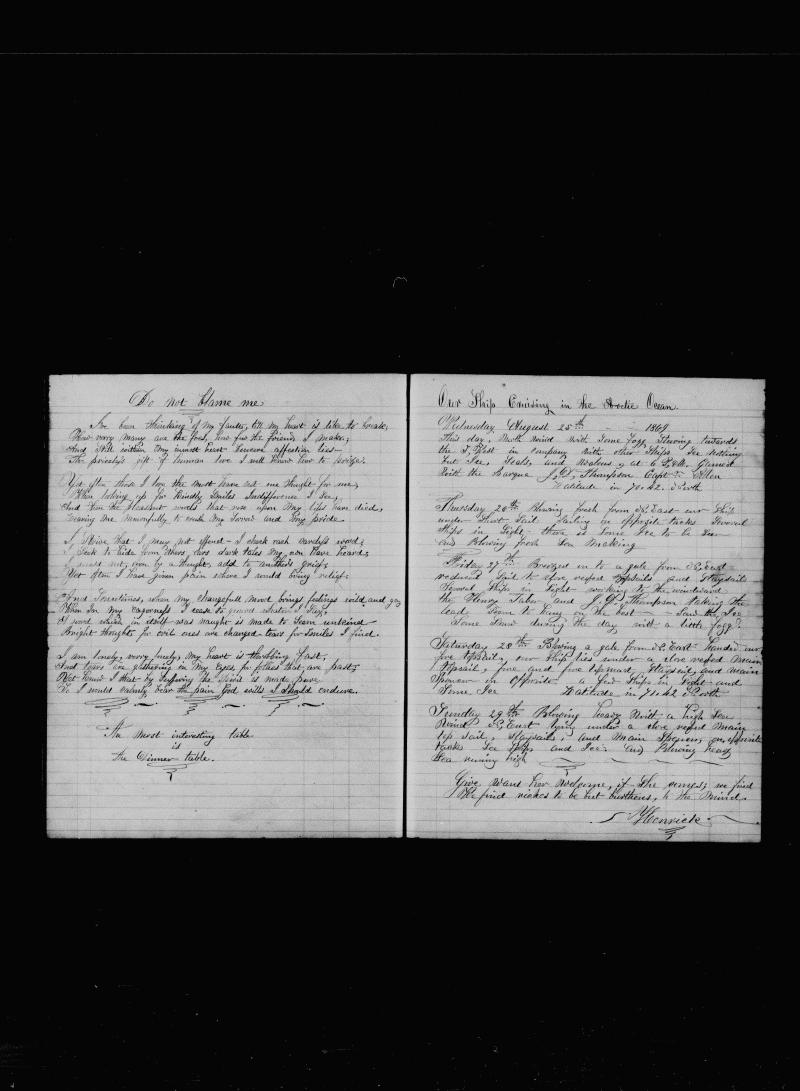 Do not blame me
I've been thinking of my faults, till my heart is like to break;
How verry many are the foes, how few the friends I make;
And still within my inmost heart Genuine affection lies—
The priceless gift of human love I well know how to prize.
Yet often those I love the most have not one thought for me,
When looking up for kindly smiles Indifference I see,
And then the pleasant words that rose upon my lips have died,
Leaving me mournfully to wish My Sorrow and Envy pride
I Strive that I may not offend - I check rash careless words;
I Seek to hide from others, ears dark tales My own have heard;
I would not, even by a thought, add to anothers grief,
Yet often I have given pain where I would bring relief.
And Sometimes, when My changefull mood brings feelings wild and gay
When In My eagerness I cease to guard whatere I Say,
A word which in itself was naught is made to Seem unkind
Bright thoughts for evil ones are changed tears for Smiles I find.
I am lonely, verry lonely, My heart is throbbing fast,
And tears are gathering in My eyes, for follies that are past;
But know I that by Suffering the Spirit is made pure
So I would calmly bear the pain God wills I Should endure.
The most interesting table
is
the Dinner table.
Our Ship Cruising in the Arctic Ocean
Wednesday August 25th - - 1869
This day, North Wind With Some fogg, Steering towards
the S, West in company with other Ships See nothing
but Ice, Seals, and Walrus, at 6 P.M. Gamed
With the barque J, D, Thompson Capt Allen
Latitude in 70.42. North
Thursday 26th Blowing fresh from N, East our Ship
under Short Sail laying on opposite tacks Several
Ships in Sight, there is Some Ice to be Seen
and Blowing fresh Sea Making
Friday 27th Breezed on to a gale from N, East
reduced Sail to close reefed topsails and Staysails
Several Ships in Sight working to the windward
the Henry Taber and J, D, Thompson taking the
lead, Seem to hang on the best - Saw the Ice
Some Snow during the day with a little fogg.
Saturday 28th Blowing a gale from N, East handed our
fore topsail, our Ship lies under a close reefed Main
topsail, fore and fore topmast Staysail, and Main
Spencer on Opposite a few Ships in Sight and
Some Ice Latitude in 70.42 North
Sunday 29th Blowing heavy With a high Sea
Wind N, East lying under a close reefed Main
top Sail, Staysails, and Main Spencer, on opposite
tacks See Ships and Ice. and Blowing heavy
Sea runing high
Give Want her Welcome, if She comes; we find
We find riches to be but burthens, to the Mind.